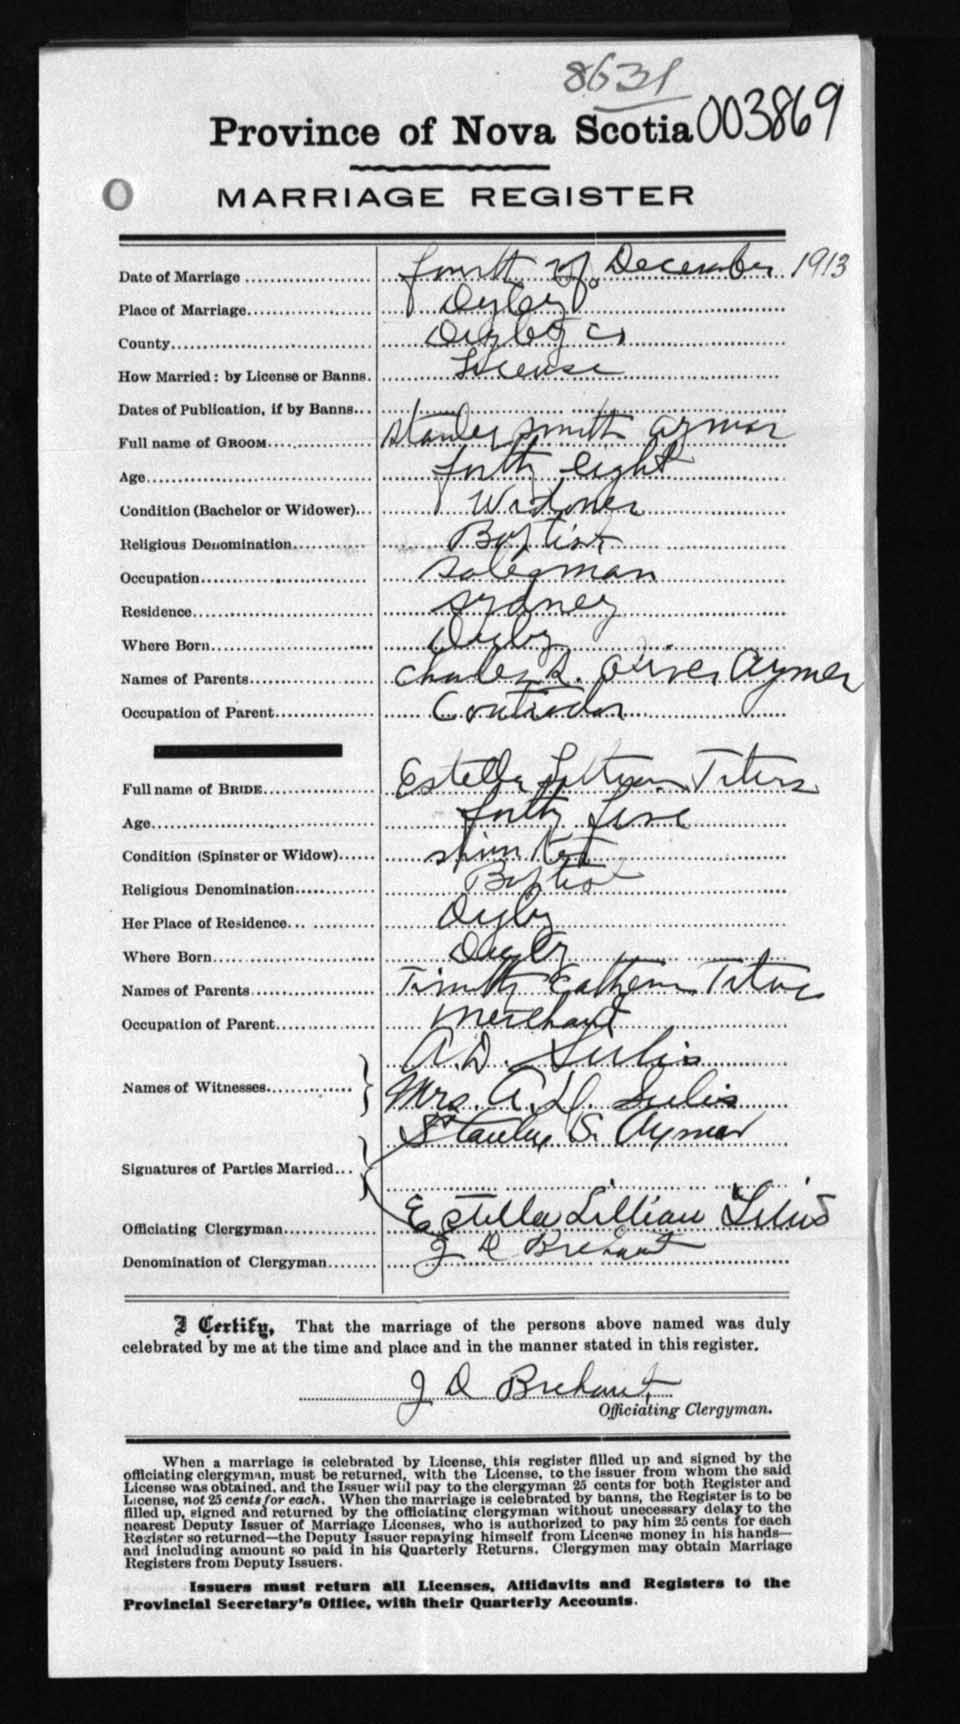 8631
Province of Nova Scotia 003869
O MARRIAGE REGISTER
Date of Marriage fourth of December 1913
Place of Marriage Digby
County Digby Co
How Married: by License or Banns. License
Dates of Publication, if by Banns
Full name of GROOM Stanley Smith Aymar
Age forty eight
Condition (Bachelor or Widower) Widower
Religious Denomination Baptist
Occupation Salesman
Residence Sydney
Where Born Digby
Names of Parents Charles Oliver Aymer
Occupation of Parent Contractor
Full name of BRIDE Estella Titus
Age forty five
Condition (Spinster or Widow) Spinster
Religious Denomination Baptist
Her Place of Residence Digby
Where Born Digby
Names of Parents Timothy Cathern Titus
Occupation of Parent Merchant
A. D. Sulis
Names of Witnesses
Mrs. A. D. Sulis
Stanley S. Aymar
Signatures of Parties Married
Estella Lillian Titus
Officiating Clergyman J D Brehaut
Denomination of Clergyman
I Certify, That the marriage of the persons above named was duly
celebrated by me at the time and place and in the manner stated in this register.
J D Brehaut
Officiating Clergyman.
When a marriage is celebrated by License, this register filled up and signed by the
officiating clergyman, must be returned, with the License, to the issuer from whom the said
License was obtained, and the Issuer will pay to the clergyman 25 cents for both Register and
License, not 25 cents for each. When the marriage is celebrated by banns, the Register is to be
filled up, signed and returned by the officiating clergyman without unecessary delay to the
nearest Deputy Issuer of Marriage Licenses, who is authorized to pay him 25 cents for each
Register so returned—the Deputy Issuer repaying himself from License money in his hands—
and including amount so paid in his Quarterly Returns. Clergymen may obtain Marriage
Registers from Deputy Issuers.
Issuers must return all Licenses, Affidavits and Registers to the
Provincial Secretary's Office, with their Quarterly Accounts.